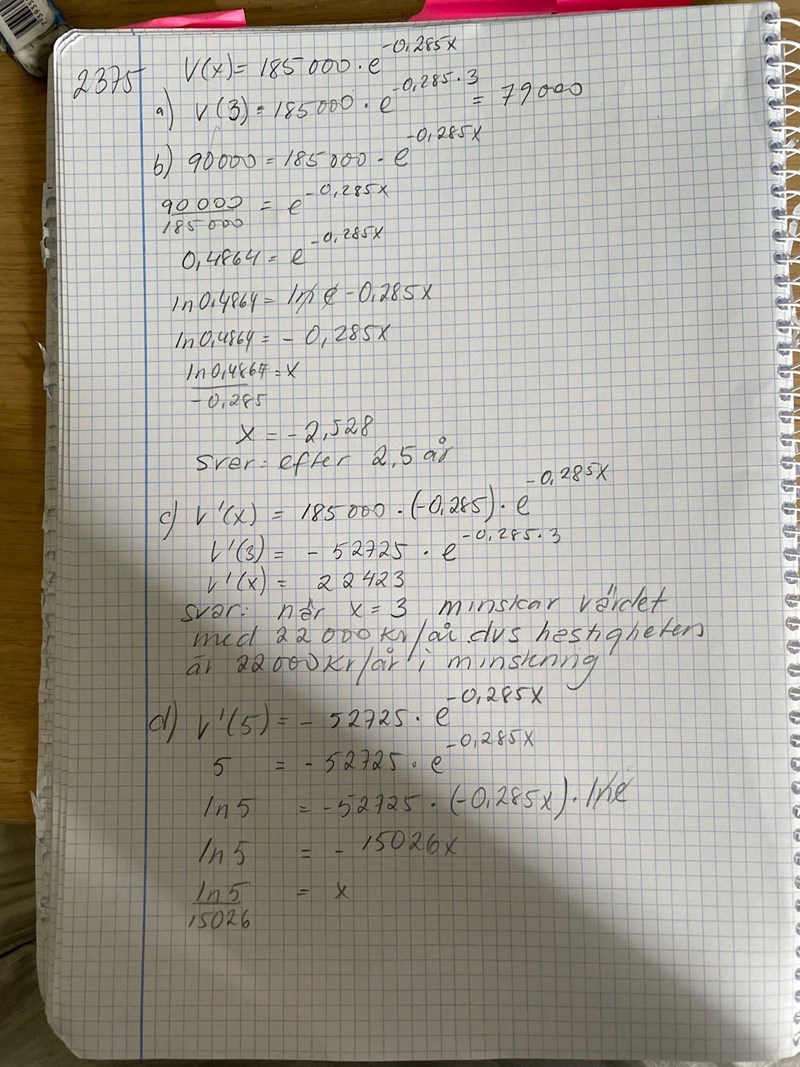 2375 V(x) = 185 000 · e^-0,285x
a) V(3) = 185000 · e^-0,285·3 = 79000
b) 90000 = 185 000 · e^-0,285x
90 000/185 000 = e^-0,285x
0,4864 = e^-0,285x
ln 0,4864 = ln e -0,285x
ln 0,4864 = - 0,285x
ln 0,4864/-0,285 = x
x = -2,528
Svar: efter 2,5 år
c) V'(x) = 185 000 · (-0,285) · e^-0,285x
V'(3) = - 52725 · e^-0,285·3
V'(x) = 22423
Svar: när x = 3 minskar värdet
med 22 000 kr/år. dvs hastigheten
är 22000 kr/år i minskning
d) V'(5) = - 52725 · e^-0,285x
5 = - 52725 · e^-0,285x
ln 5 = -52725 · (-0,285x) · ln e
ln 5 = - 15026x
ln 5/15026 = x